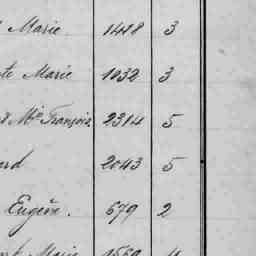 Marie 1418 3
te Marie 1032 3
& Me François 2314 5
ard 2043 5
Eugène. 679 2
Marie 1569 4